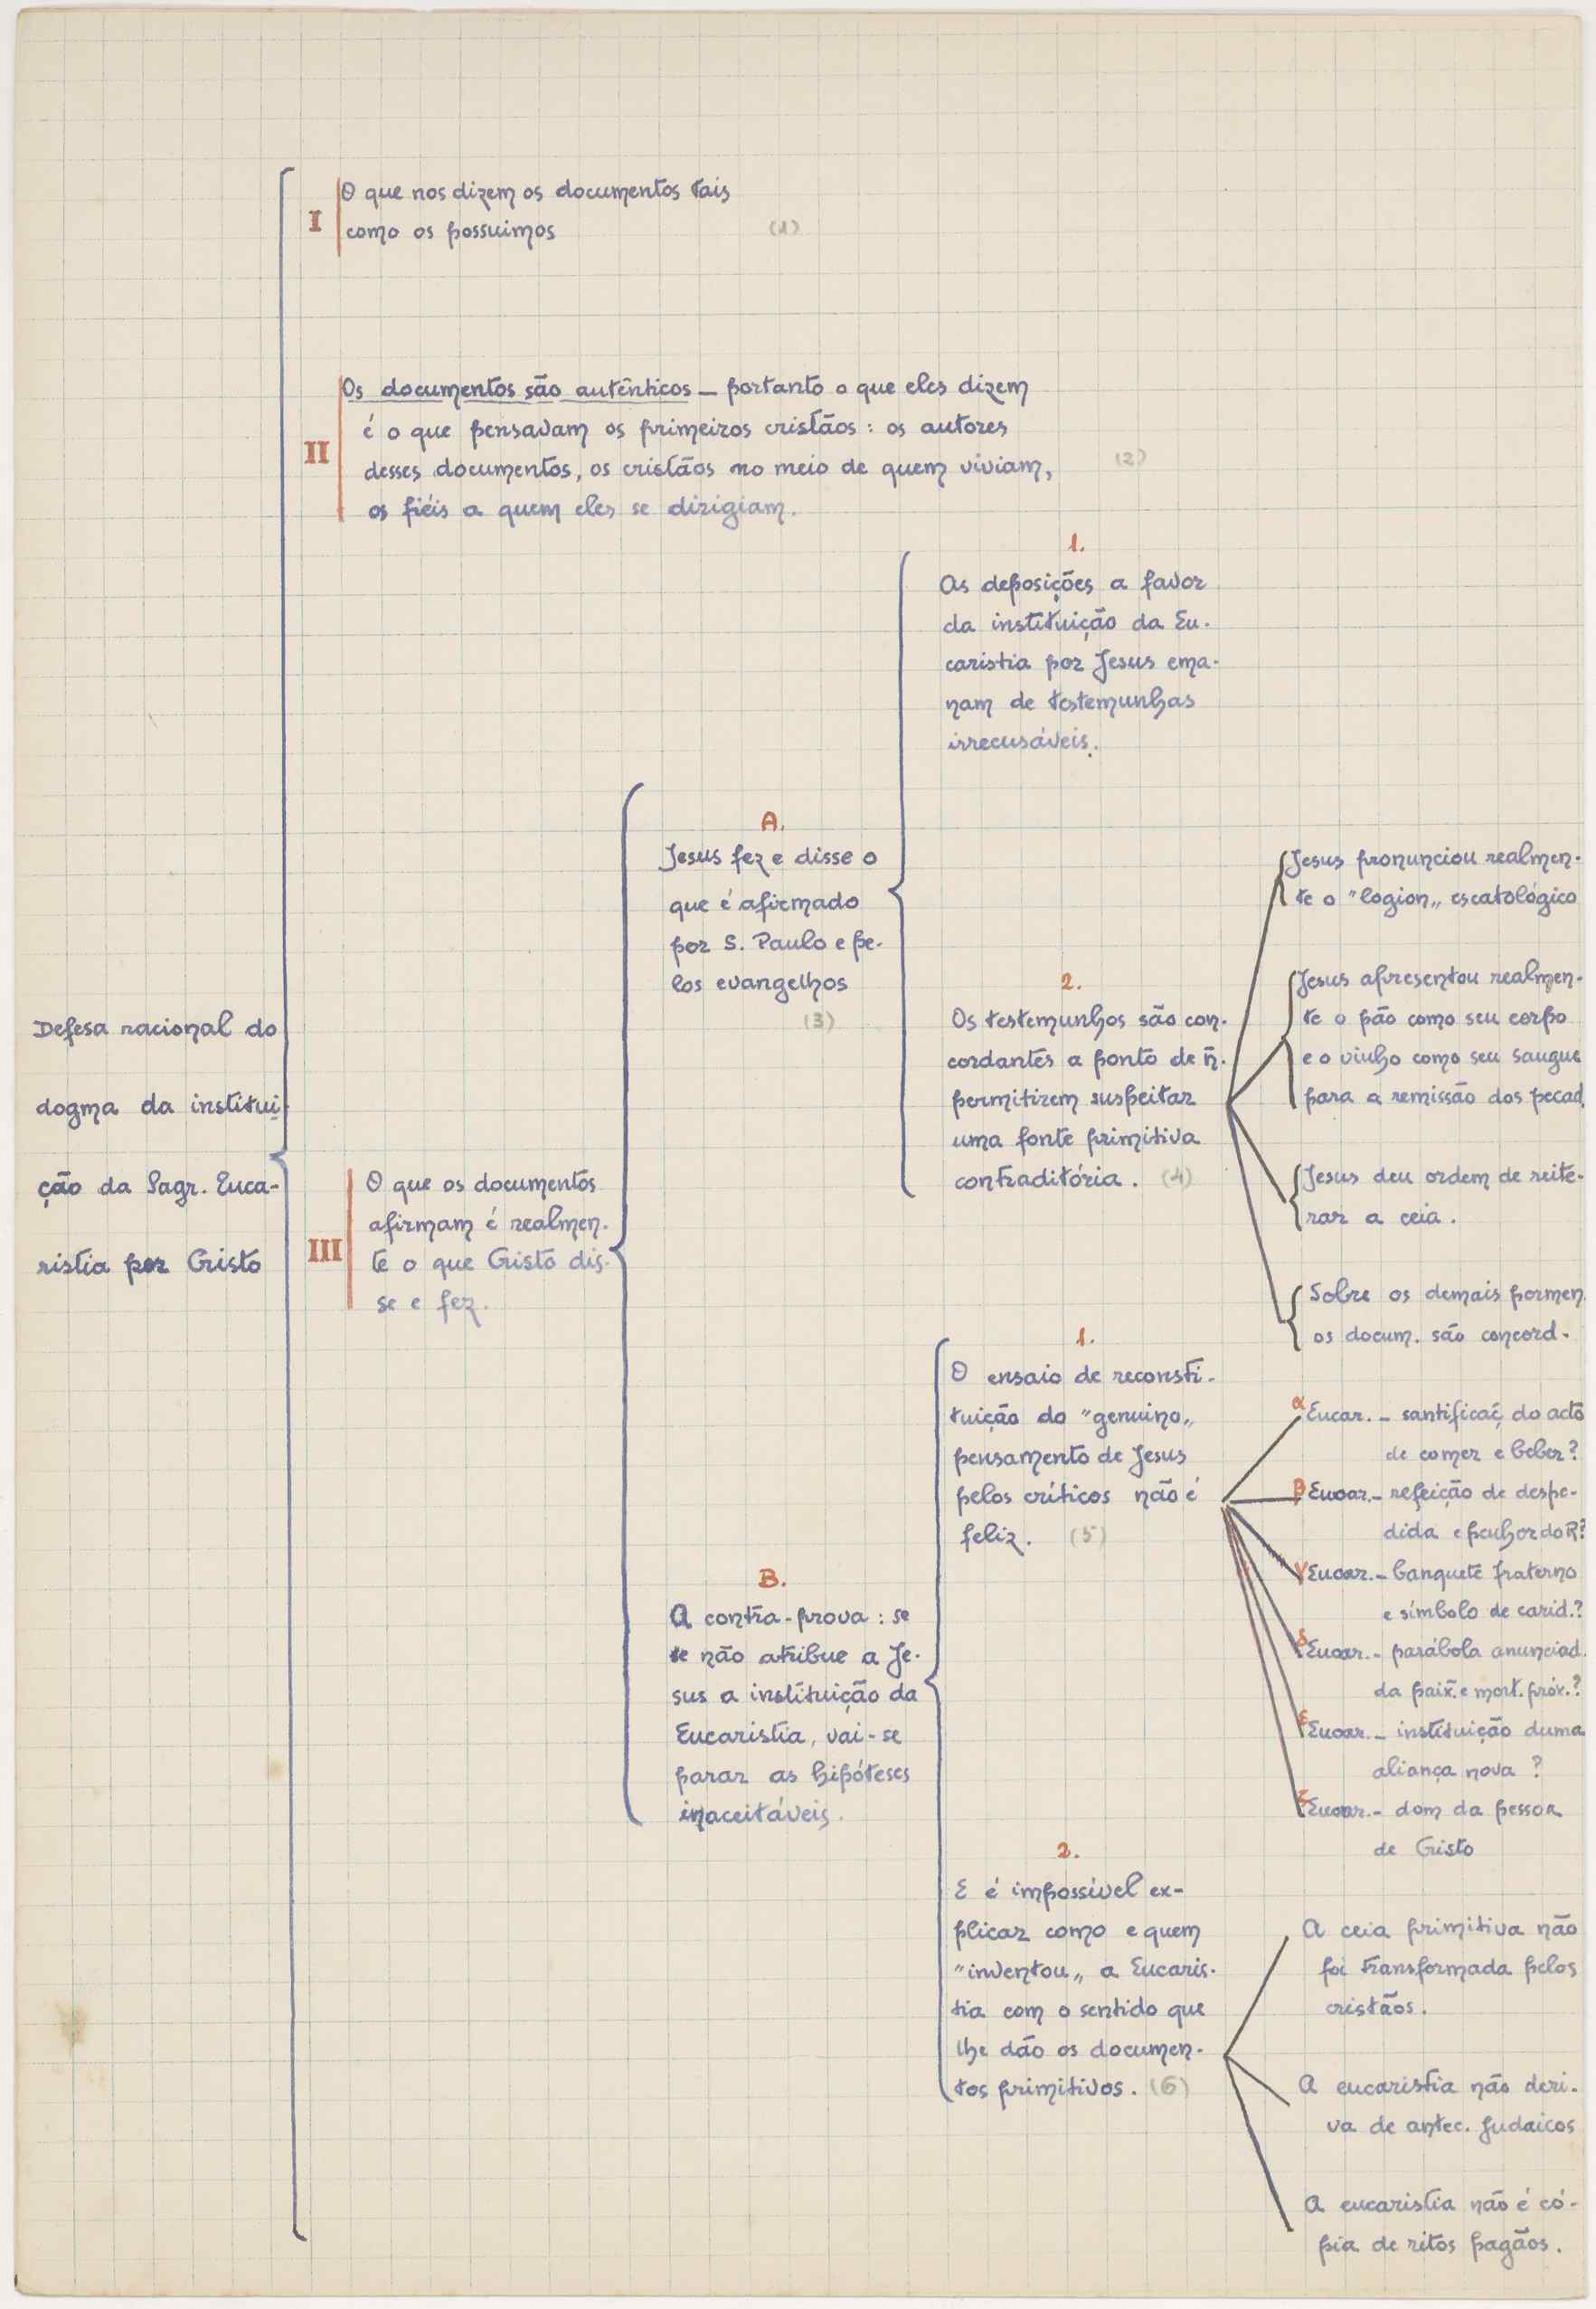 Defesa racional do
dogma da institui-
ção da Sagr. Euca-
ristia por Cristo
I
O que nos dizem os documentos tais
como os possuimos (1)
II
Os documentos são autênticos — portanto o que eles dizem
é o que pensavam os primeiros cristãos: os autores
desses documentos, os cristãos no meio de quem viviam, (2)
os fiéis a quem eles se dirigiam.
III
O que os documentos
afirmam é realmen-
te o que Cristo dis-
se e fez.
A.
Jesus fez e disse o
que é afirmado
por S. Paulo e pe-
los evangelhos
(3)
1.
As deposições a favor
da instituição da Eu-
caristia por Jesus ema-
nam de testemunhas
irrecusáveis.
2.
Os testemunhos são con-
cordantes a ponto de ñ.
permitirem suspeitar
uma fonte primitiva
contraditória. (4)
Jesus pronunciou realmen-
te o "logion„ escatológico
Jesus apresentou realmen-
te o pão como seu corpo
e o vinho como seu sangue
para a remissão dos pecad.
Jesus deu ordem de reite-
rar a ceia.
Sobre os demais pormen.
os docum. são concord.
B.
A contra-prova: se
se não atribue a Je-
sus a instituição da
Eucaristia, vai-se
parar as hipóteses
inaceitáveis.
1.
O ensaio de reconsti-
tuição do "genuino„
pensamento de Jesus
pelos críticos não é
feliz. (5)
α Eucar. — santificaç̃ do acto
de comer e beber?
β Eucar. — refeição de despe-
dida e penhor do R?
γ Eucar. — banquete fraterno
e símbolo de carid.?
δ Eucar. — parábola anunciad.
da paix̃. e mort. próx.?
ε Eucar. — instituição duma
aliança nova?
ζ Eucar. — dom da pessoa
de Cristo
2.
E é impossível ex-
plicar como e quem
"inventou„ a Eucaris-
tia com o sentido que
lhe dão os documen-
tos primitivos. (6)
A ceia primitiva não
foi transformada pelos
cristãos.
A eucaristia não deri-
va de antec. judaicos
A eucaristia não é có-
pia de ritos pagãos.